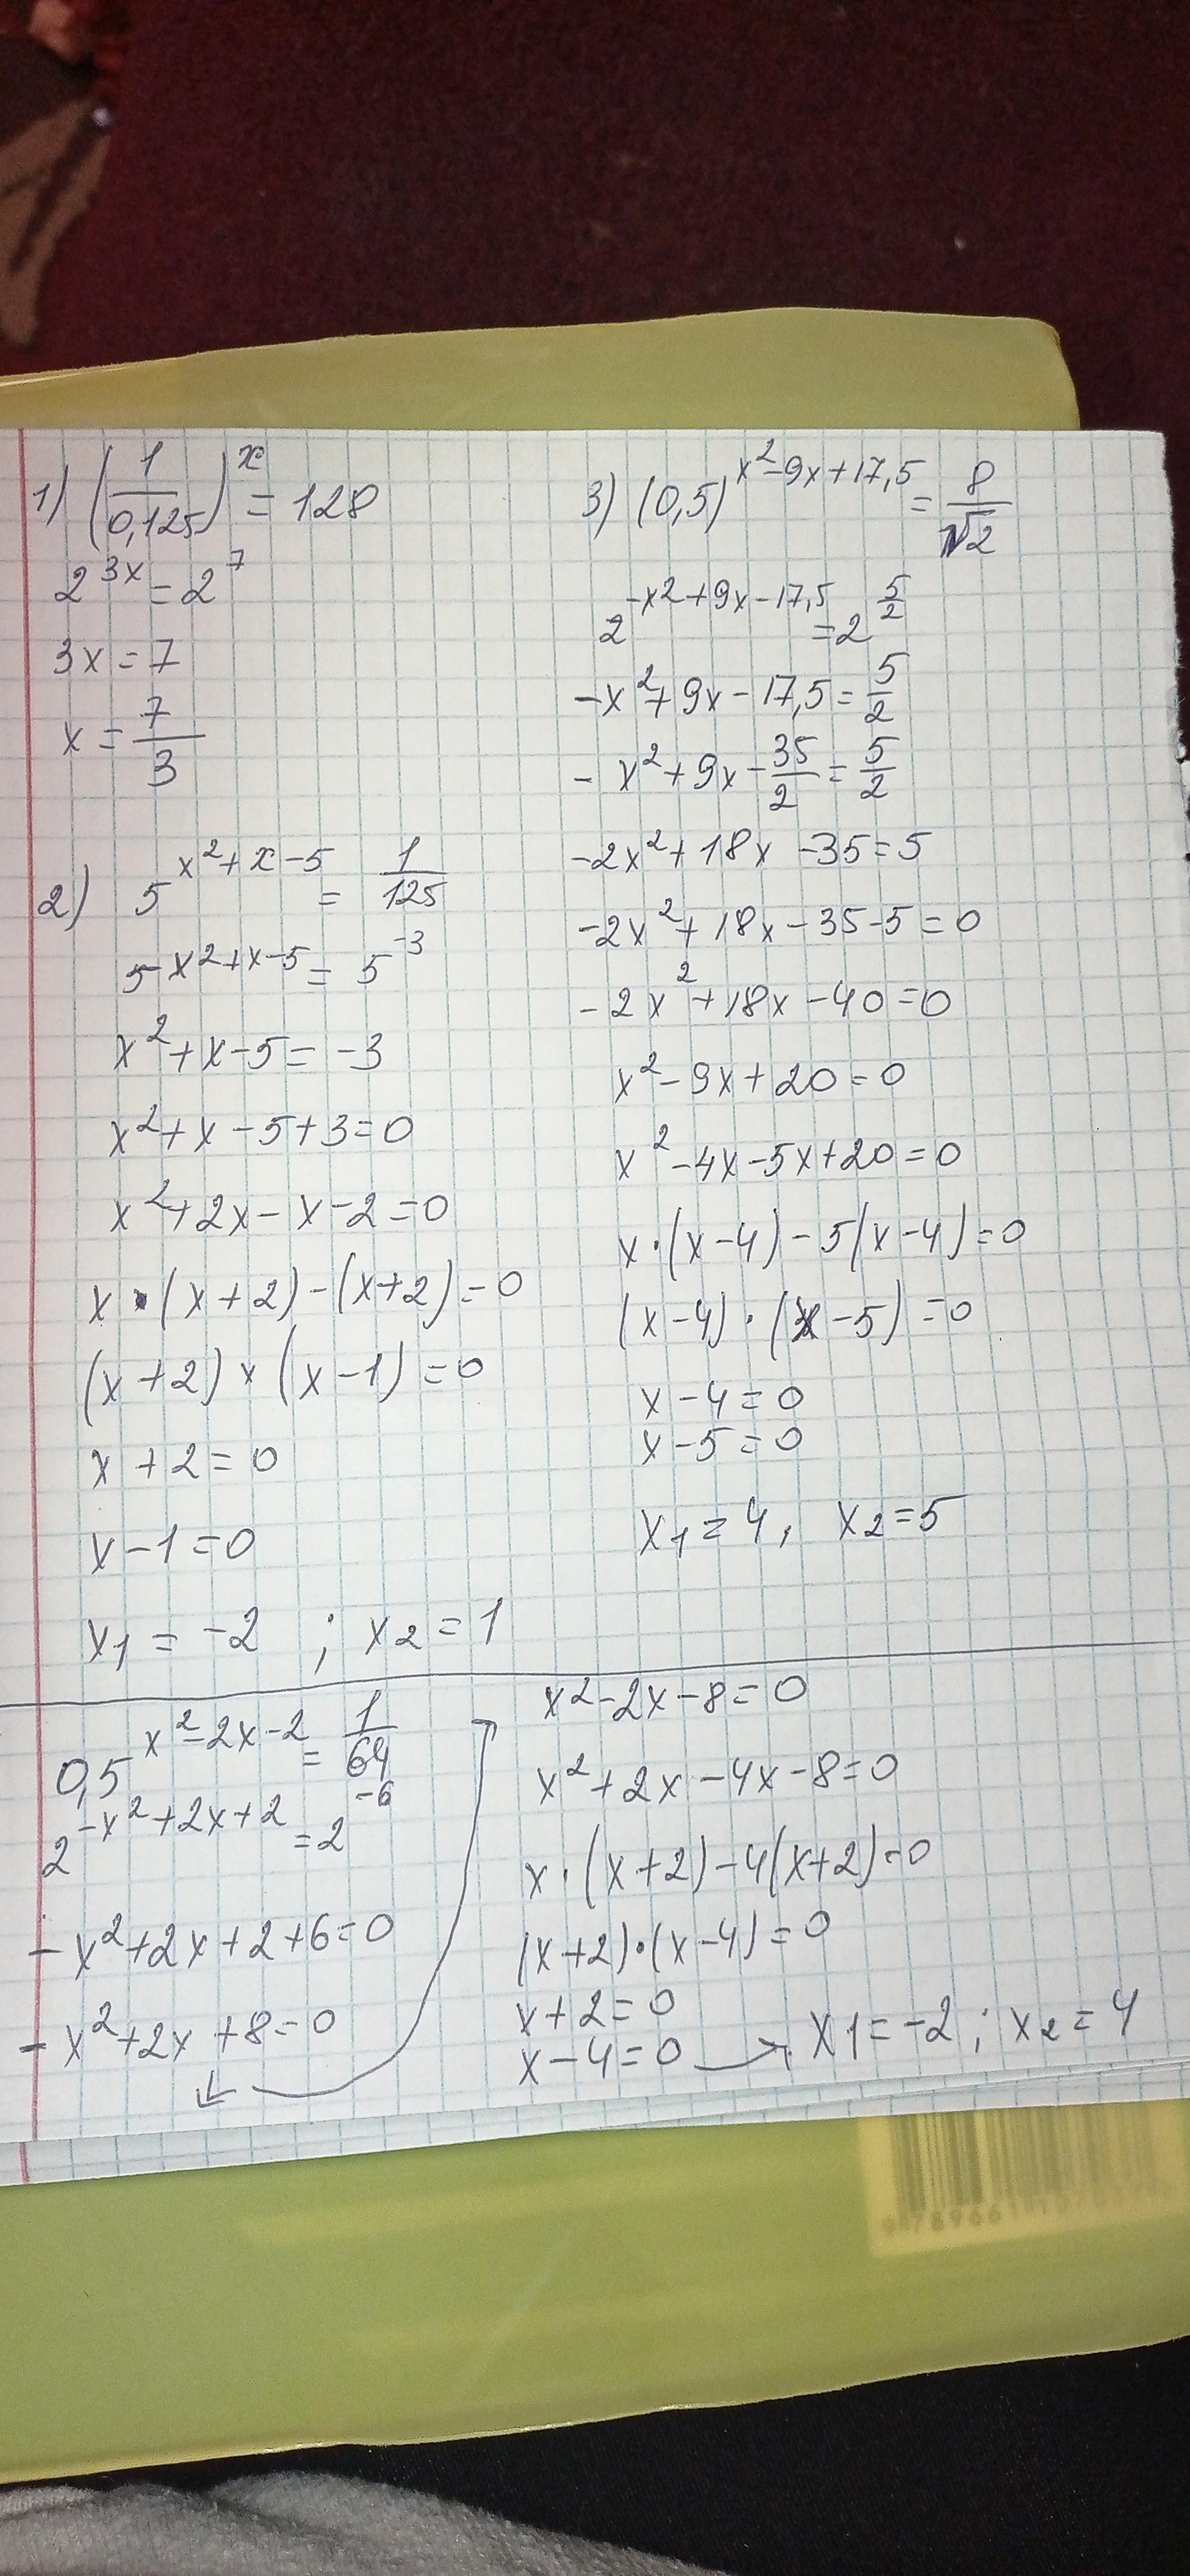 1) (1/0,125)^x = 128
2^3x = 2^7
3x = 7
x = 7/3
2) 5^x²+x-5 = 1/125
5^x²+x-5 = 5^-3
x²+x-5 = -3
x²+x-5+3=0
x²+2x-x-2=0
x·(x+2)-(x+2)=0
(x+2)×(x-1)=0
x+2=0
x-1=0
x1 = -2 ; x2 = 1
3) (0,5)^x²-9x+17,5 = 8/√2
2^-x²+9x-17,5 = 2^5/2
-x²+9x-17,5 = 5/2
-x²+9x-35/2 = 5/2
-2x²+18x-35=5
-2x²+18x-35-5=0
-2x²+18x-40=0
x²-9x+20=0
x²-4x-5x+20=0
x·(x-4)-5(x-4)=0
(x-4)·(x-5)=0
x-4=0
x-5=0
x1=4, x2=5
0,5^x²-2x-2 = 1/64
2^-x²+2x+2 = 2^-6
-x²+2x+2+6=0
-x²+2x+8=0
x²-2x-8=0
x²+2x-4x-8=0
x·(x+2)-4(x+2)=0
(x+2)·(x-4)=0
x+2=0
x-4=0 → x1=-2 ; x2=4